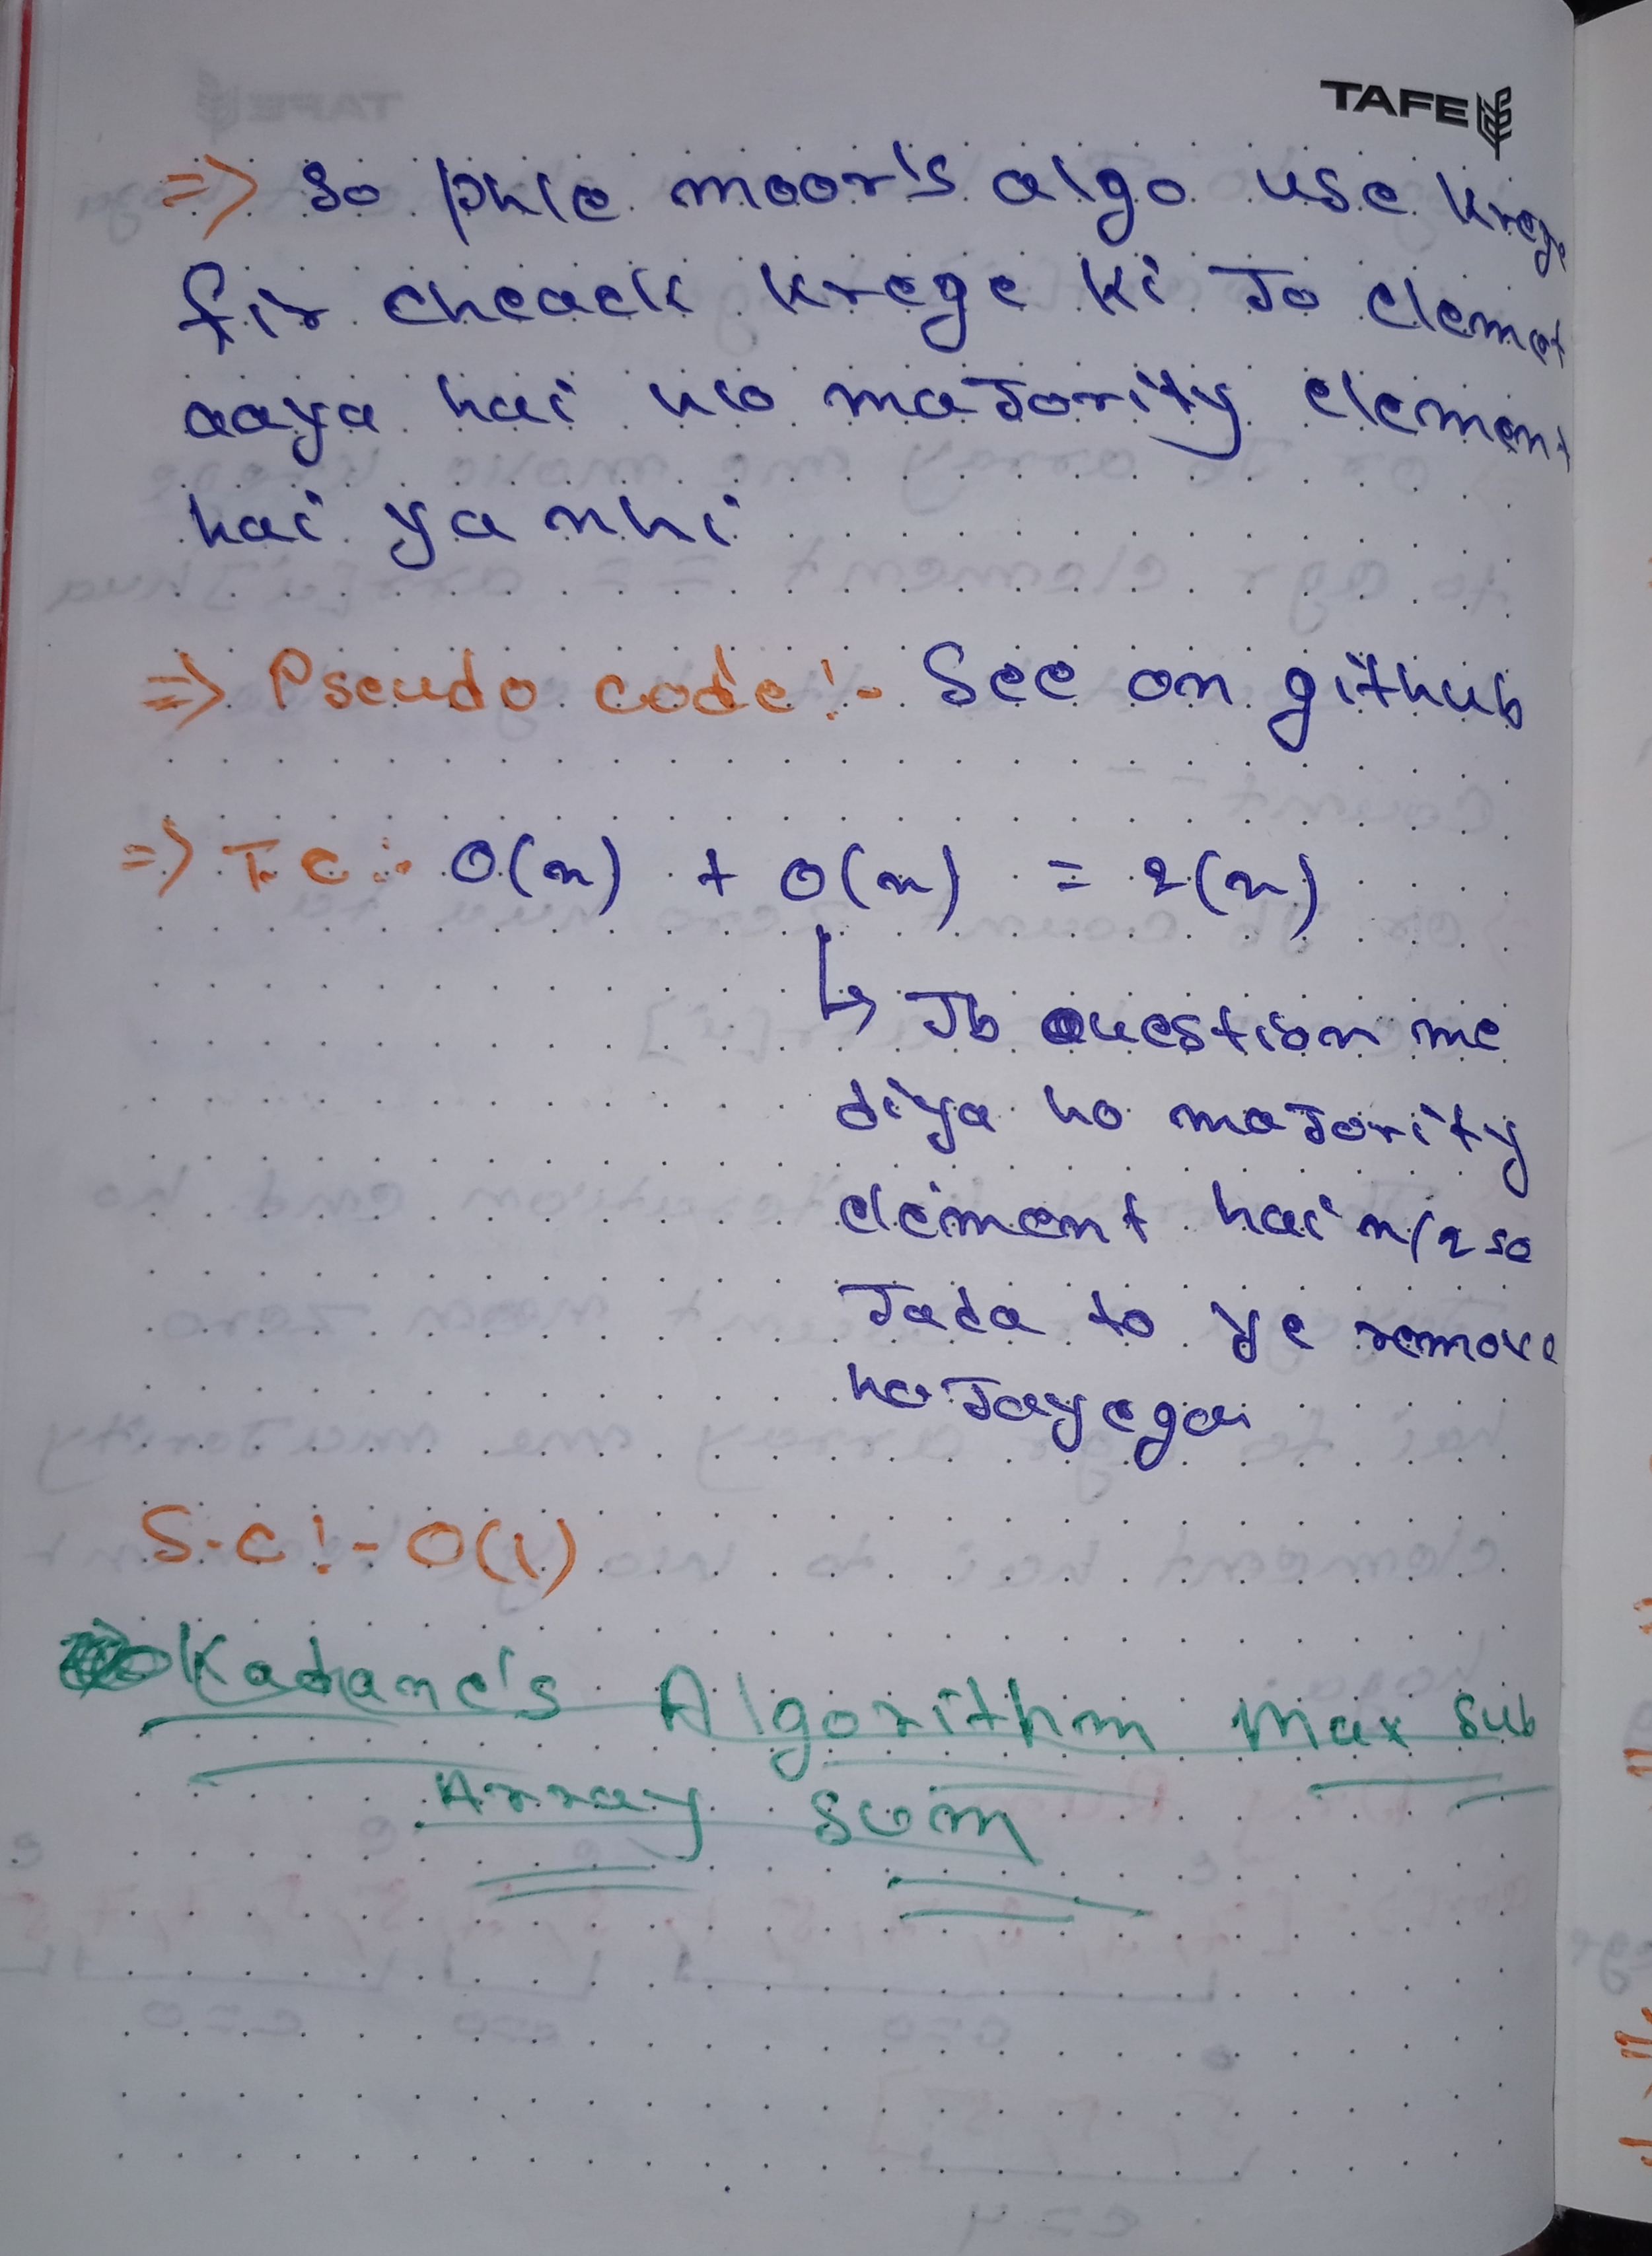 TAFE
=> So phle moor's algo use krege
fir cheack krege ki Jo elemet
aaya hai wo maJority element
hai ya nhi
=> Pseudo code :- See on github
=> T.C :- O(n) + O(n) = 2(n)
↳ Jb question me
diya ho maJority
element hai n/2 se
Jada to ye remove
ho Jayega
S.C :- O(1)
Kadane's Algorithm Max Sub
Array Sum